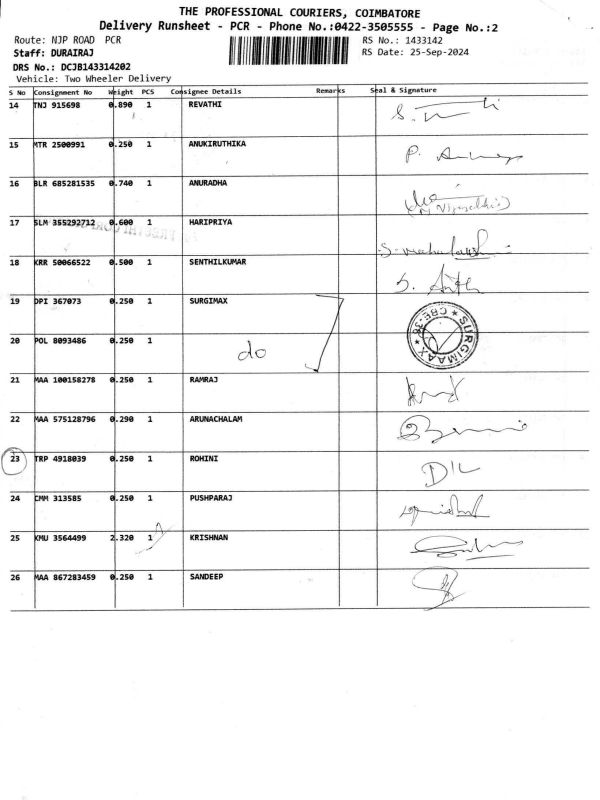 THE PROFESSIONAL COURIERS, COIMBATORE
Delivery Runsheet - PCR - Phone No.:0422-3505555 - Page No.:2
Route: NJP ROAD PCR RS No.: 1433142
Staff: DURAIRAJ RS Date: 25-Sep-2024
DRS No.: DCJB143314202
Vehicle: Two Wheeler Delivery
S No Consignment No Weight PCS Consignee Details Remarks Seal & Signature
14 TNJ 915698 0.890 1 REVATHI
15 MTR 2500991 0.250 1 ANUKIRUTHIKA
16 BLR 685281535 0.740 1 ANURADHA
17 SLM 355292712 0.600 1 HARIPRIYA
18 KRR 50066522 0.500 1 SENTHILKUMAR
19 DPI 367073 0.250 1 SURGIMAX
SURGIMAAX * CBE-36 *
20 POL 8093486 0.250 1 do
21 MAA 100158278 0.250 1 RAMRAJ
22 MAA 575128796 0.290 1 ARUNACHALAM
23 TRP 4918039 0.250 1 ROHINI D/L
24 CMM 313585 0.250 1 PUSHPARAJ
25 KMU 3564499 2.320 1 KRISHNAN
26 MAA 867283459 0.250 1 SANDEEP